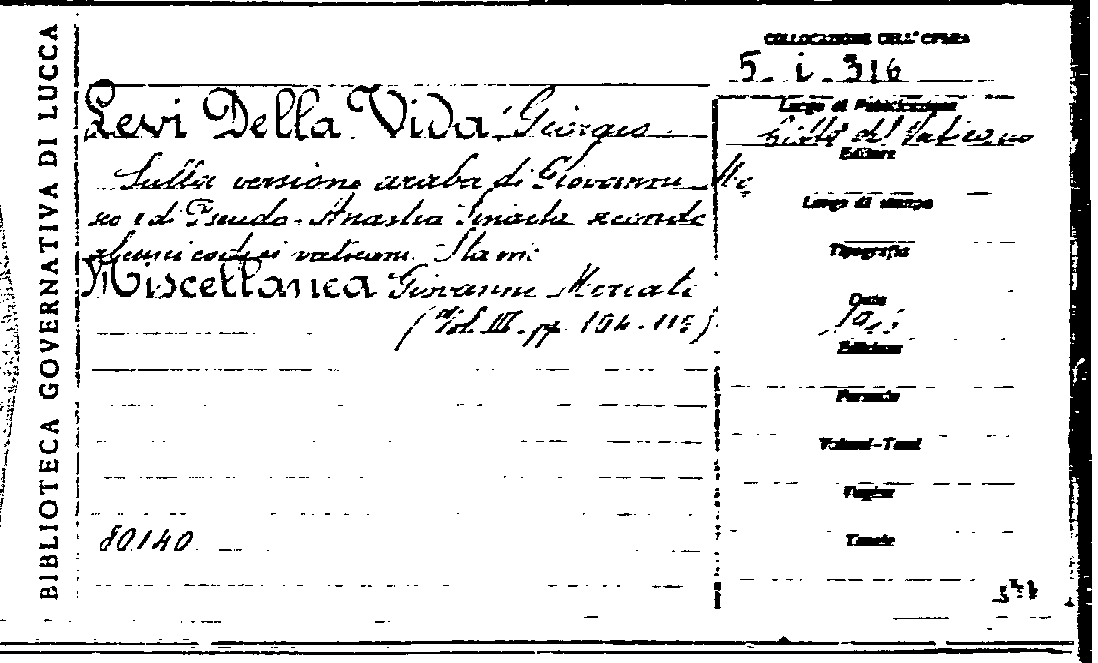 BIBLIOTECA GOVERNATIVA DI LUCCA
COLLOCAZIONE DELL'OPERA
5. i. 316
Levi Della Vida Giorgio
Sulla versione araba di Giovanni Mo
sco e di Pseudo-Anastasio Sinaita secondo
alcuni codici vaticani. Sta in:
Miscellanea Giovanni Mercati
(Vol. III. pp. 104-115)
80140
Luogo di Pubblicazione
Città del Vaticano
Editore
Luogo di stampa
Tipografia
Data
Edizione
Formato
Volumi-Tomi
Pagine
Tavole